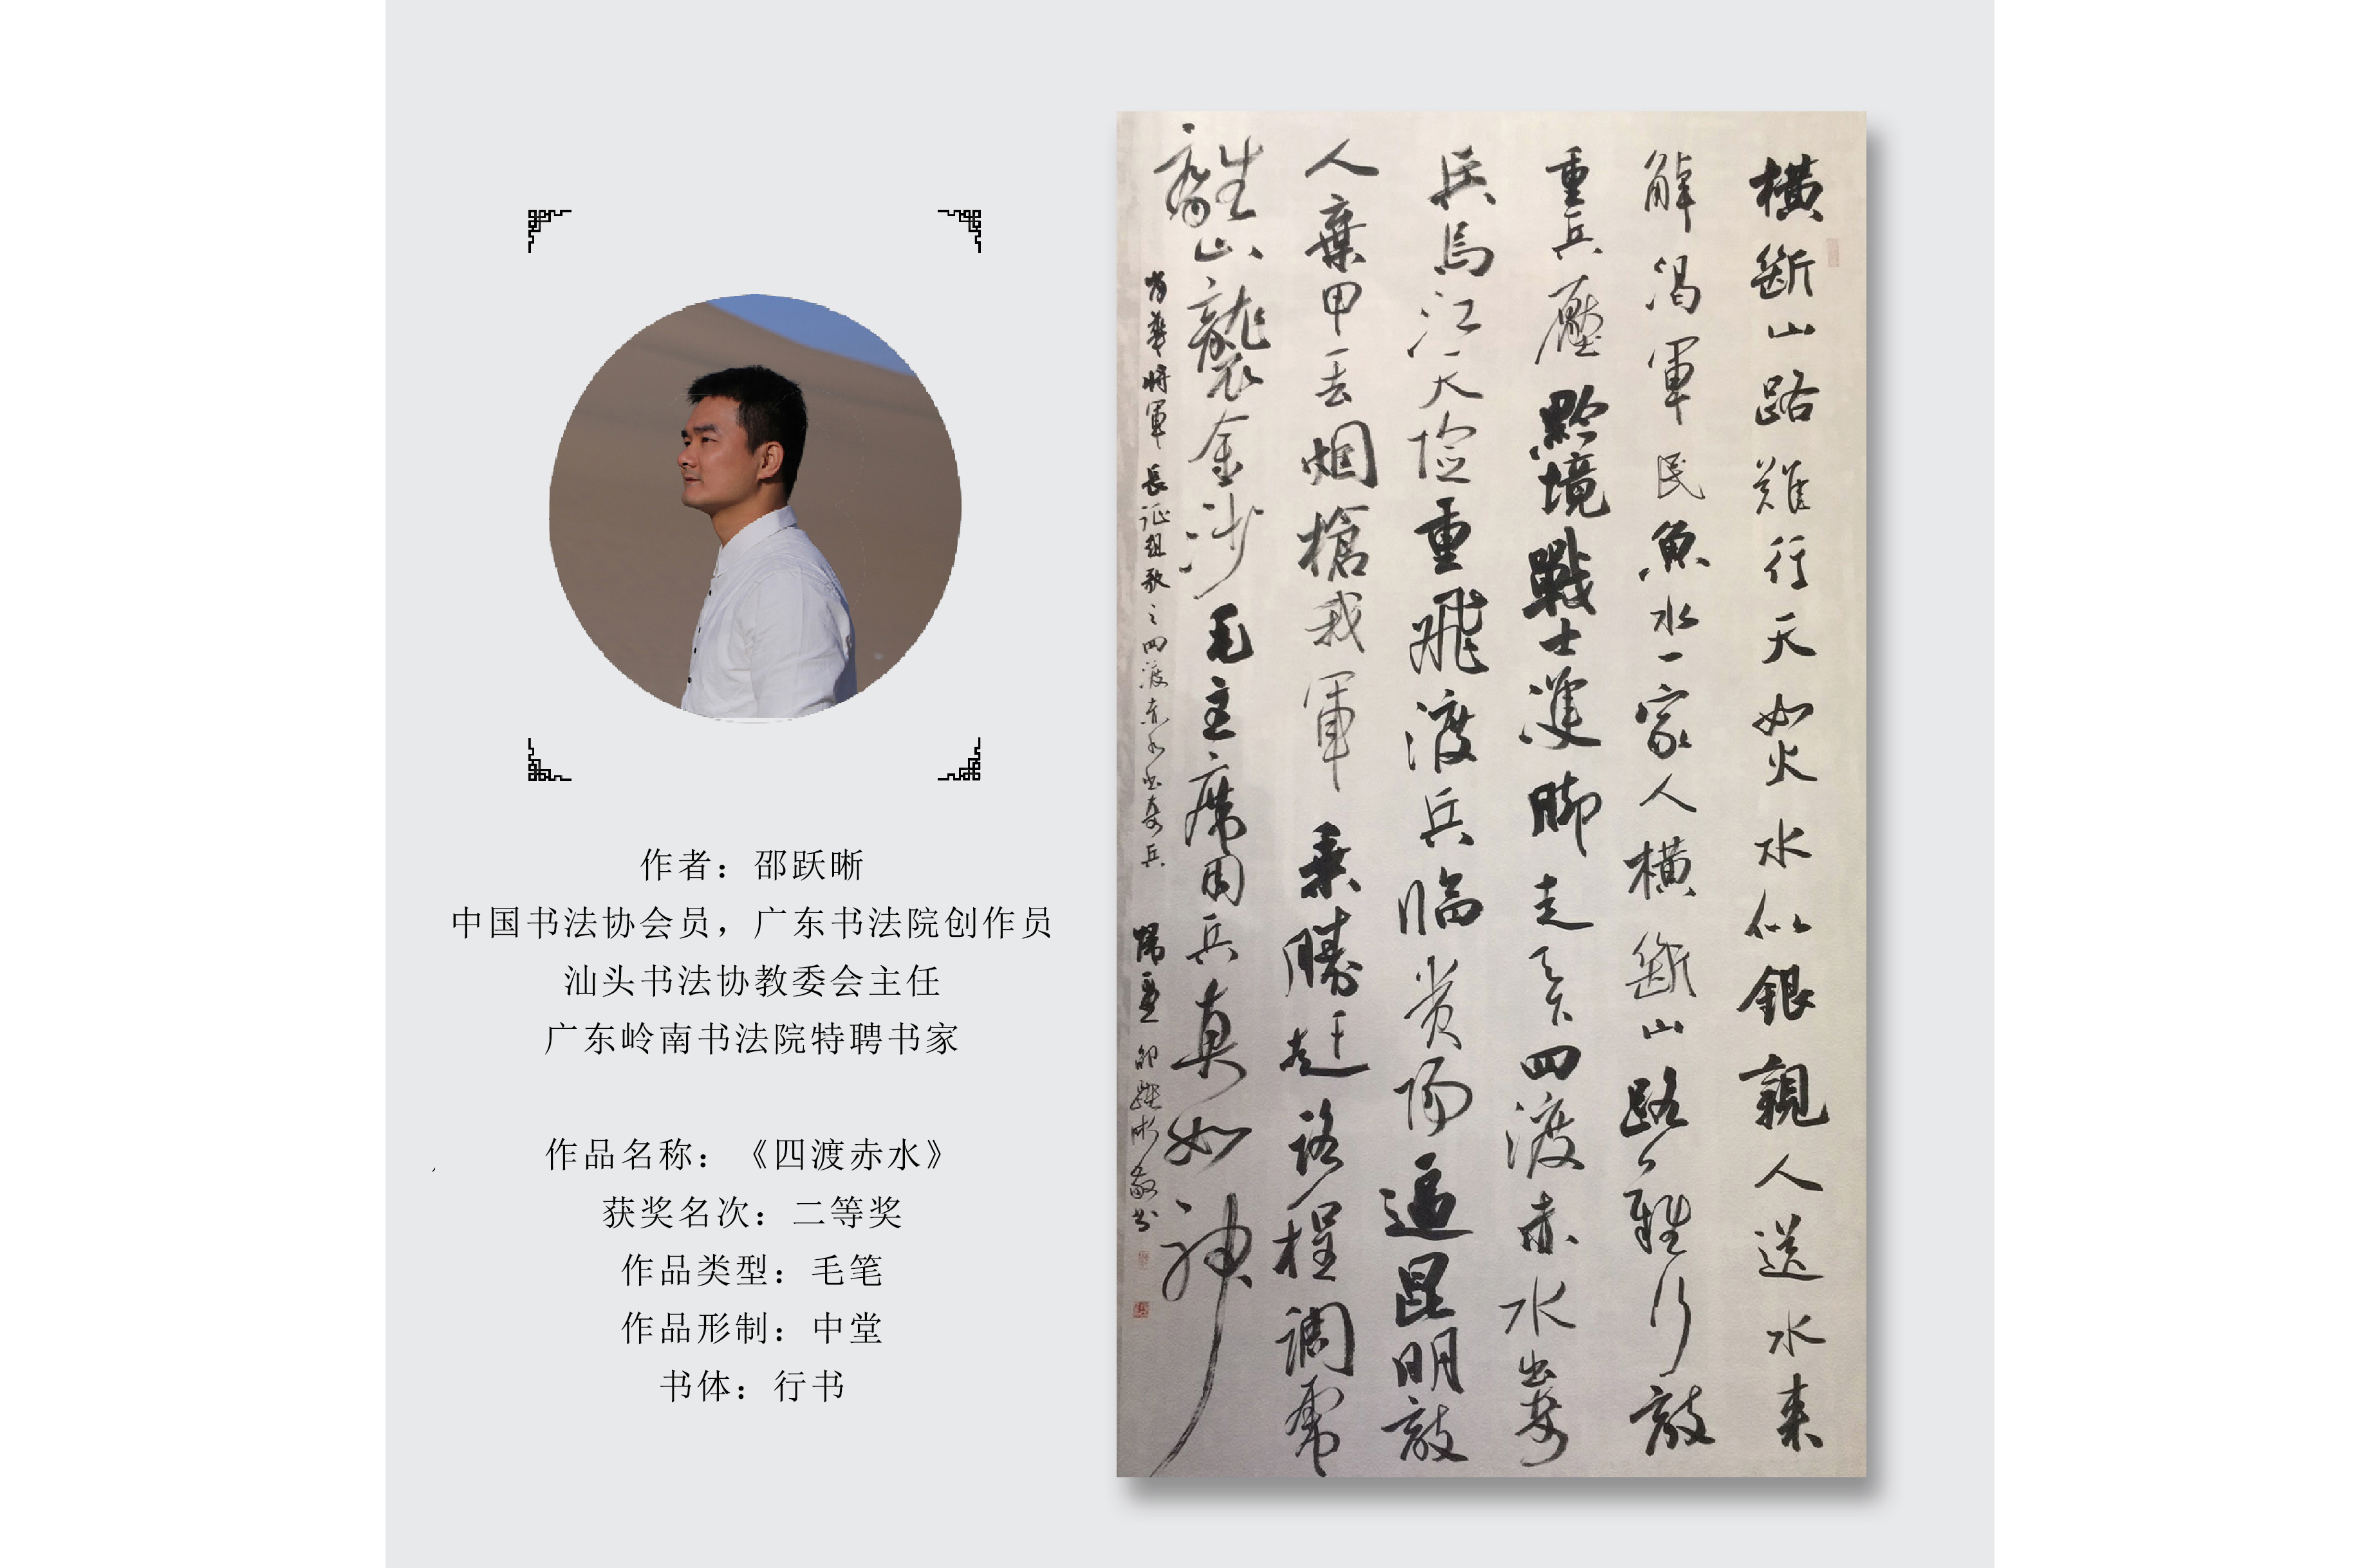 作者：邵跃晰
中国书法协会员，广东书法院创作员
汕头书法协教委会主任
广东岭南书法院特聘书家
作品名称：《四渡赤水》
获奖名次：二等奖
作品类型：毛笔
作品形制：中堂
书体：行书
橫斷山路難行天如火水似銀親人送水来
解渴軍民魚水一家人橫斷山路難行敵
重兵壓黔境戰士雙脚走天下四渡赤水出奇
兵烏江天险重飛渡兵臨贵陽逼昆明敵
人棄甲丢烟槍我軍乘勝赶路程調虎
離山襲金沙毛主席用兵真如神
肖華將軍長征組歌之四渡赤水出奇兵 邵躍晰敬书